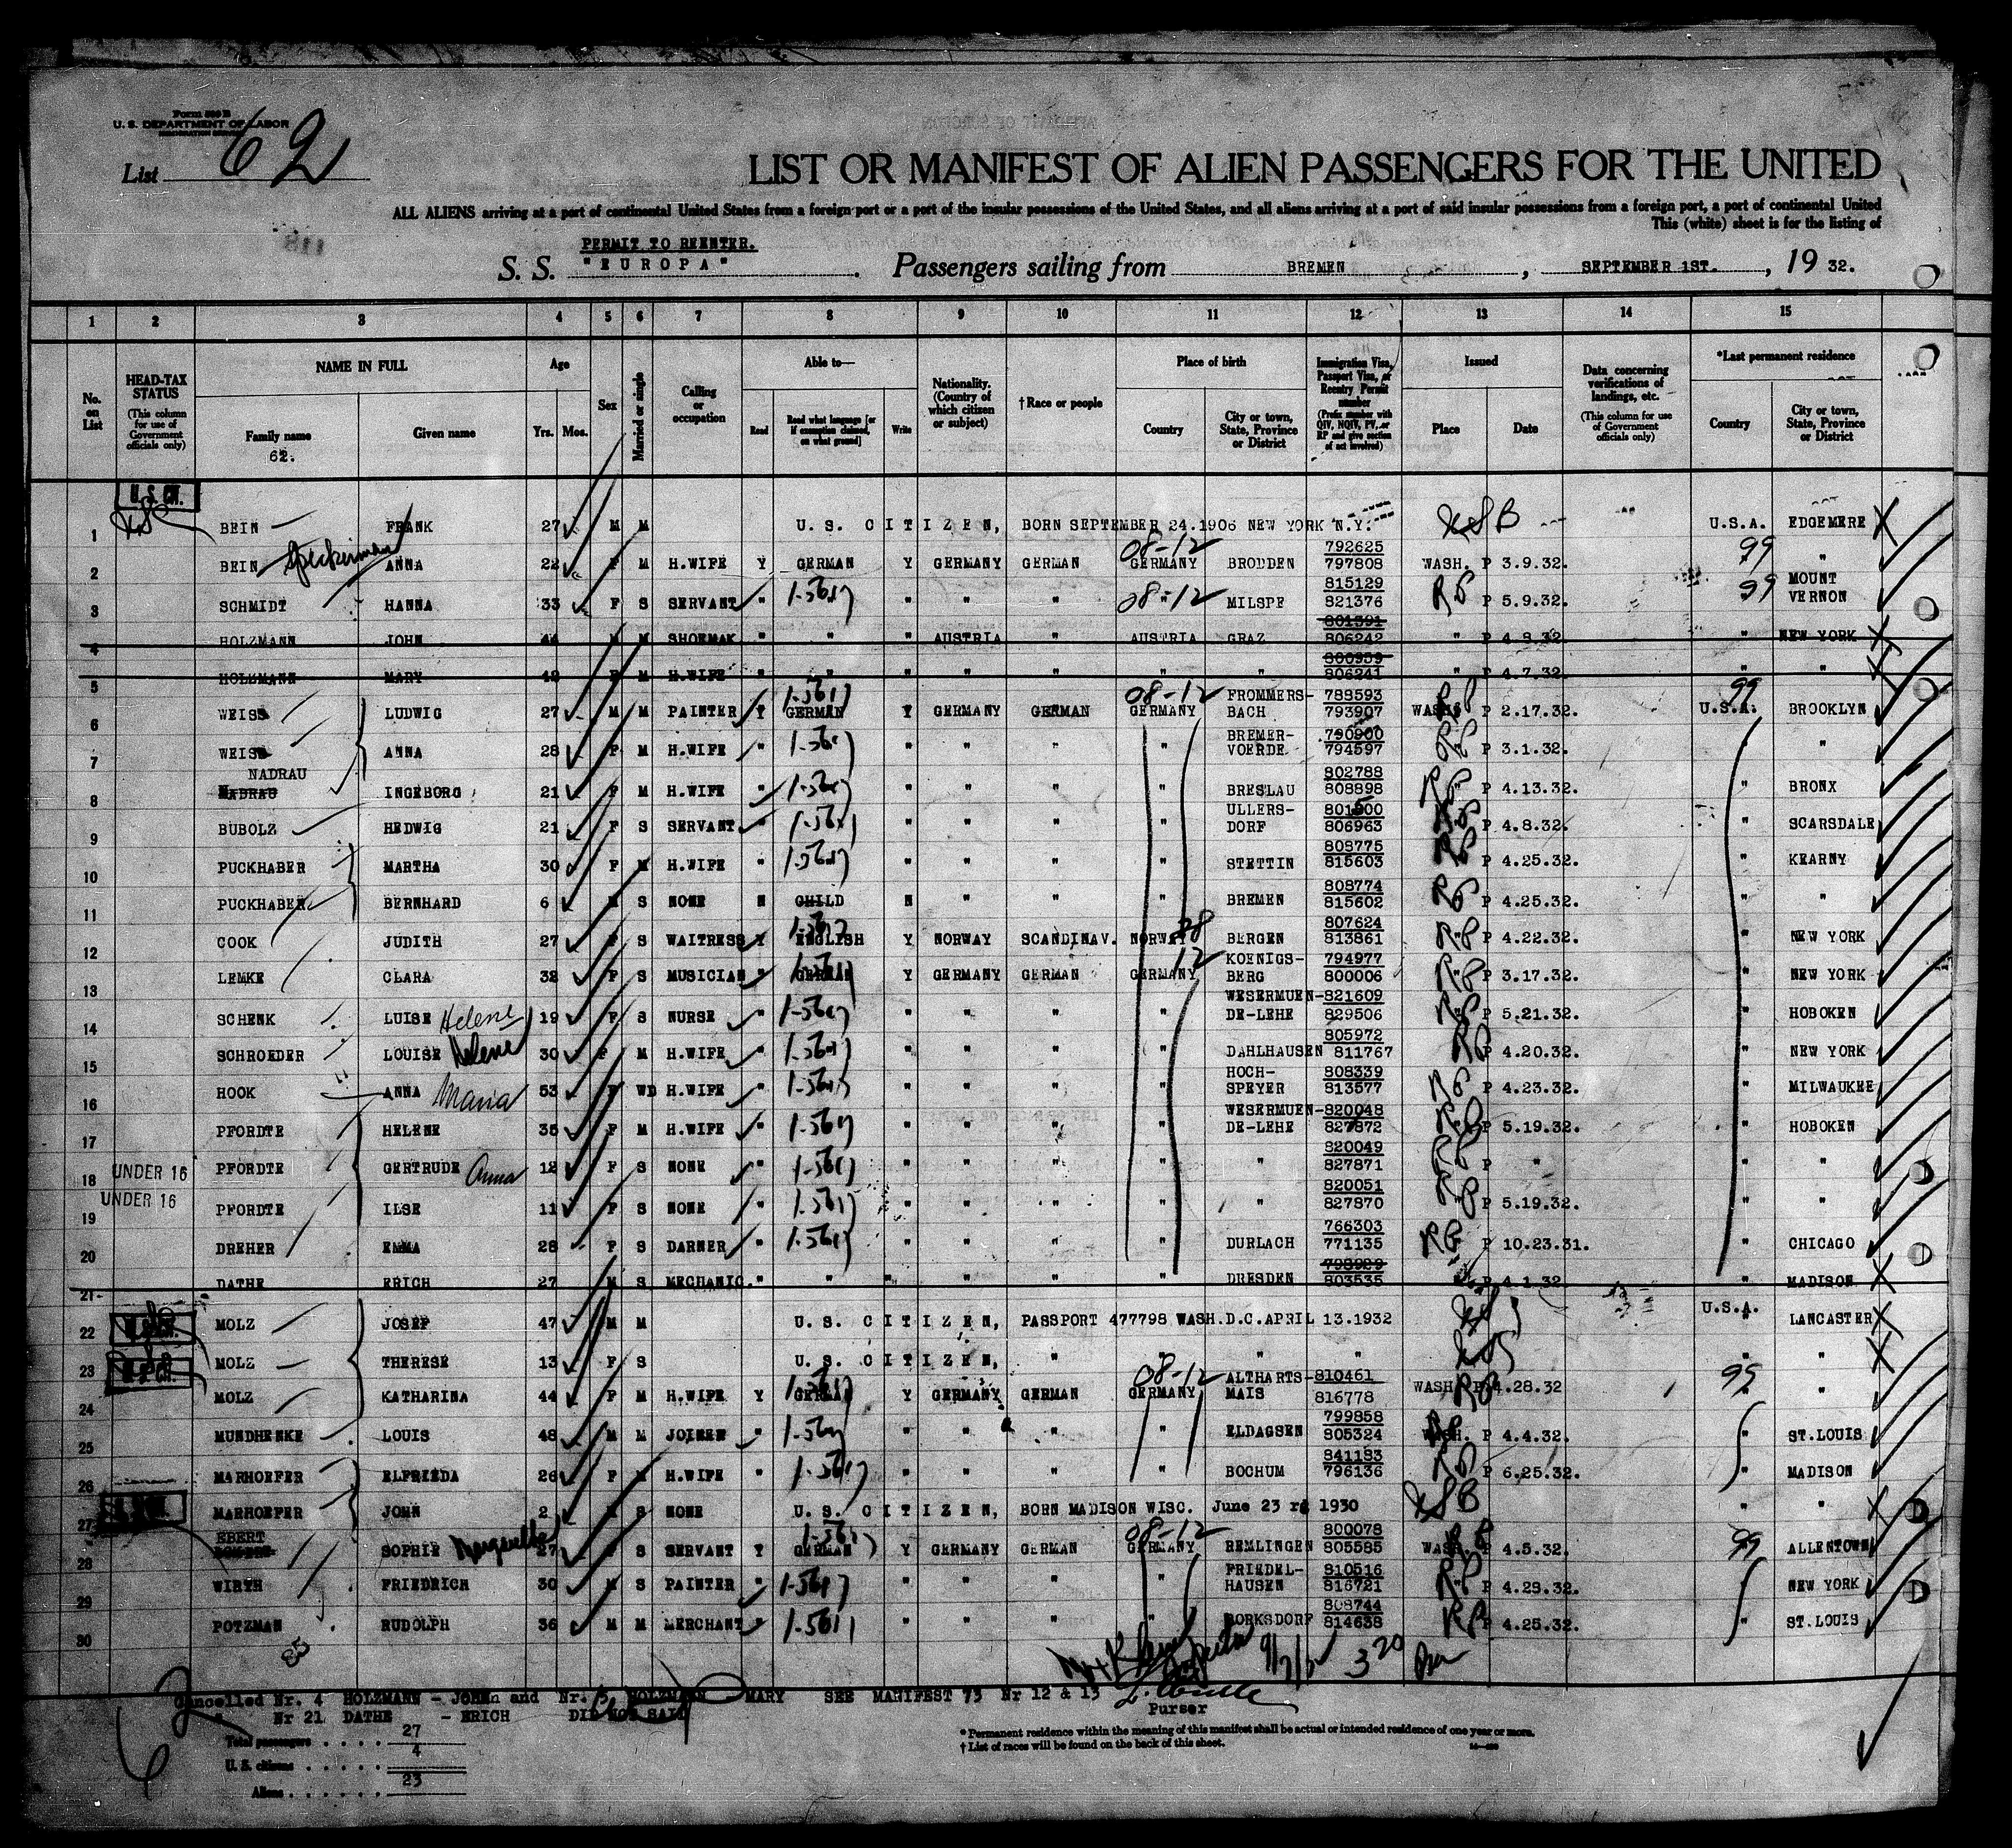 Form 500 B
U. S. DEPARTMENT OF LABOR
IMMIGRATION SERVICE
List 62
LIST OR MANIFEST OF ALIEN PASSENGERS FOR THE UNITED
ALL ALIENS arriving at a port of continental United States from a foreign port or a port of the insular possessions of the United States, and all aliens arriving at a port of said insular possessions from a foreign port, a port of continental United
This (white) sheet is for the listing of
PERMIT TO REENTER.
S. S. "EUROPA" . Passengers sailing from BREMEN , SEPTEMBER 1ST. , 19 32.
1 2 3 4 5 6 7 8 9 10 11 12 13 14 15
No. on List
HEAD-TAX STATUS (This column for use of Government officials only)
NAME IN FULL Family name Given name
62.
Age Yrs. Mos.
Sex
Married or single
Calling or occupation
Able to— Read Read what language [or if exemption claimed, on what ground] Write
Nationality. (Country of which citizen or subject)
†Race or people
Place of birth Country City or town, State, Province or District
Immigration Visa, Passport Visa, or Reentry Permit number (Prefix number with QIV, NQIV, PV, or RP and give section of act involved)
Issued Place Date
Data concerning verifications of landings, etc. (This column for use of Government officials only)
*Last permanent residence Country City or town, State, Province or District
U.S. CIT.
1 BEIN FRANK 27 M M U. S. CITIZEN, BORN SEPTEMBER 24.1906 NEW YORK N.Y. U.S.A. EDGEMERE
2 BEIN Speckerman ANNA 22 F M H.WIFE Y GERMAN Y GERMANY GERMAN 08-12 GERMANY BRODDEN 792625 797808 WASH. P 3.9.32. 99 "
3 SCHMIDT HANNA 33 F S SERVANT " " " " 08-12 " MILSPE 815129 821376 P 5.9.32. 99 MOUNT VERNON
4 HOLZMANN JOHN 44 M M SHOEMAK " " " AUSTRIA " AUSTRIA GRAZ 801391 806242 " P 4.8.32. " NEW YORK
5 HOLZMANN MARY 42 F M H.WIFE " " " " " " " 800959 806241 " P 4.7.32. " "
6 WEISS LUDWIG 27 M M PAINTER Y GERMAN Y GERMANY GERMAN 08-12 GERMANY FROMMERS-BACH 788593 793907 WASH. P 2.17.32. 99 U.S.A. BROOKLYN
7 WEISS ANNA 28 F M H.WIFE " " " " " BREMER-VOERDE 790900 794597 P 3.1.32. "
NADRAU
8 NADRAU INGEBORG 21 F M H.WIFE " " " " " BRESLAU 802788 808898 P 4.13.32. " BRONX
9 BUBOLZ HEDWIG 21 F S SERVANT " " " " " ULLERS-DORF 801500 806963 P 4.8.32. " SCARSDALE
10 PUCKHABER MARTHA 30 F M H.WIFE " " " " " STETTIN 808775 815603 P 4.25.32. " KEARNY
11 PUCKHABER BERNHARD 6 M S NONE N CHILD N " " " BREMEN 808774 815602 P 4.25.32. " "
12 COOK JUDITH 27 F S WAITRESS Y ENGLISH Y NORWAY SCANDINAV. NORWAY BERGEN 807624 813861 P 4.22.32. " NEW YORK
13 LEMKE CLARA 32 F S MUSICIAN " GERMAN Y GERMANY GERMAN GERMANY KOENIGS-BERG 794977 800006 P 3.17.32. " NEW YORK
14 SCHENK LUISE Helene 19 F S NURSE " " " " " WESERMUEN-DE-LEHE 821609 829506 P 5.21.32. " HOBOKEN
15 SCHROEDER LOUISE Helene 30 F M H.WIFE " " " " " DAHLHAUSEN 805972 811767 P 4.20.32. " NEW YORK
16 HOOK ANNA Maria 53 F WD H.WIFE " " " " " HOCH-SPEYER 808339 813577 P 4.23.32. " MILWAUKEE
17 PFORDTE HELENE 35 F M H.WIFE " " " " " WESERMUEN-DE-LEHE 820048 827872 P 5.19.32. " HOBOKEN
UNDER 16
18 PFORDTE GERTRUDE Anna 12 F S NONE " " " " " " 820049 827871 P " " "
UNDER 16
19 PFORDTE ILSE 11 F S NONE " " " " " " 820051 827870 P 5.19.32. " "
20 DREHER EMMA 28 F S DARNER " " " " " DURLACH 766303 771135 P 10.23.31. " CHICAGO
21 DATHE ERICH 27 M S MECHANIC. " " " " " " DRESDEN 798929 803535 " P 4.1.32. " MADISON
22 MOLZ JOSEF 47 M M U. S. CITIZEN, PASSPORT 477798 WASH.D.C.APRIL 13.1932 U.S.A. LANCASTER
23 MOLZ THERESE 13 F S U. S. CITIZEN, " " " " "
24 MOLZ KATHARINA 44 F M H.WIFE Y GERMAN Y GERMANY GERMAN 08-12 GERMANY ALTHARTS-MAIS 810461 816778 WASH. P 4.28.32 99 " "
25 MUNDHENKE LOUIS 48 M M JOINER " " " " " ELDAGSEN 799858 805324 WASH. P 4.4.32. " ST.LOUIS
26 MARHOEFER ELFRIEDA 26 F M H.WIFE " " " " " BOCHUM 841183 796136 P 6.25.32. " MADISON
27 MARHOEFER JOHN 2 M S NONE U. S. CITIZEN, BORN MADISON WISC. June 23 rd 1930 " "
EBERT
28 SOPHIE 27 F S SERVANT Y GERMAN Y GERMANY GERMAN 08-12 GERMANY REMLINGEN 800078 805585 WASH. P 4.5.32. 99 ALLENTOWN
29 WIRTH FRIEDRICH 30 M S PAINTER " " " " " FRIEDEL-HAUSEN 810516 816721 P 4.29.32. " NEW YORK
30 POTZMAN RUDOLPH 36 M M MERCHANT " " " " " BORKSDORF 808744 814638 P 4.25.32. " ST.LOUIS
Cancelled Nr. 4 HOLZMANN - JOHN and Nr. 5 HOLZMANN MARY SEE MANIFEST 73 Nr 12 & 13
" Nr 21 DATHE - ERICH DID NOT SAIL
Purser
Total passengers . . . . 27
U. S. citizens . . . . . 4
Aliens . . . . . . 23
* Permanent residence within the meaning of this manifest shall be actual or intended residence of one year or more.
† List of races will be found on the back of this sheet.